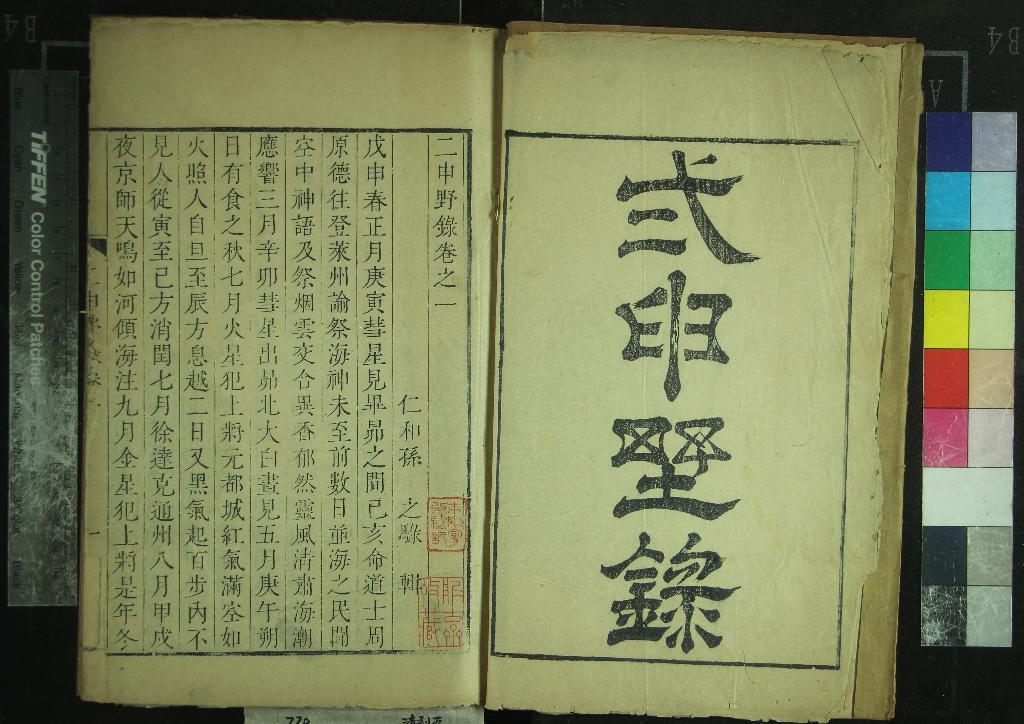 弍申野錄
二申野錄卷之一
仁和孫 之騄 輯
戊申春正月庚寅彗星見畢昴之間已亥命道士周
原德往登萊州諭祭海神未至前數日並海之民聞
空中神語及祭烟雲交合異香郁然靈風清肅海潮
應響三月辛卯彗星出昴北大白晝見五月庚午朔
日有食之秋七月火星犯上將元都城紅氣滿空如
火照人自旦至辰方息越二日又黑氣起百步內不
見人從寅至已方消閏七月徐達克通州八月甲戌
夜京師天鳴如河傾海注九月金星犯上將是年冬
一
TIFFEN Color Control Patches
Blue
Cyan
Green
Yellow
Red
Magenta
White
Black
B4
B4
A
770